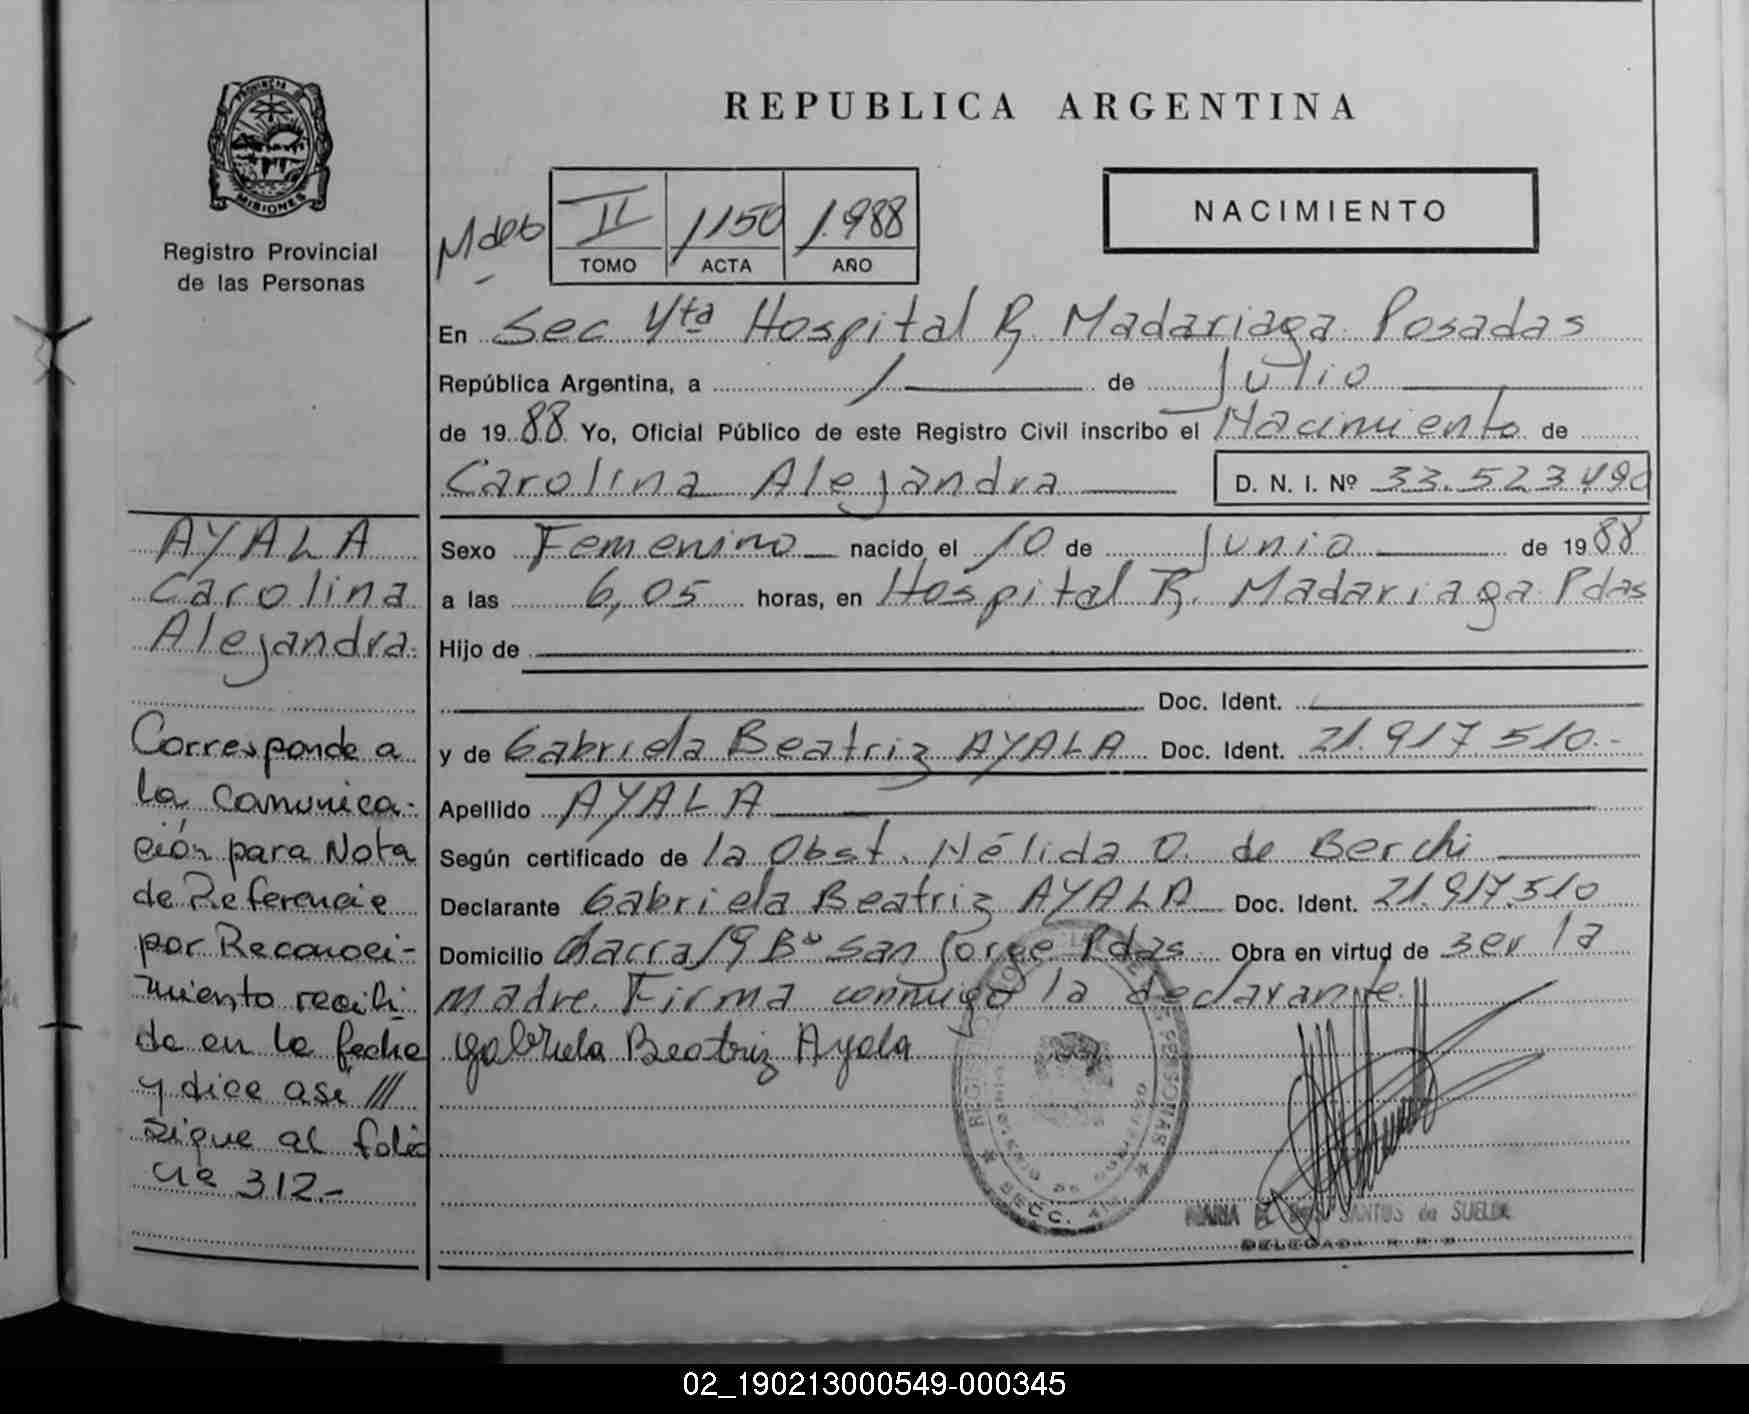 PROVINCIA DE
MISIONES
Registro Provincial
de las Personas
REPUBLICA ARGENTINA
NACIMIENTO
II 1150 1.988
TOMO ACTA AÑO
En Sec 4ta Hospital R. Madariaga Posadas
República Argentina, a 1 de Julio
de 1988 Yo, Oficial Público de este Registro Civil inscribo el Nacimiento de
Carolina Alejandra D. N. I. Nº 33.523.490
Sexo Femenino nacido el 10 de Junio de 1988
a las 6,05 horas, en Hospital R. Madariaga Pdas
Hijo de
Doc. Ident.
y de Gabriela Beatriz AYALA Doc. Ident. 21.917.510.-
Apellido AYALA
Según certificado de la Obst. Nélida O. de Berchi
Declarante Gabriela Beatriz AYALA Doc. Ident. 21.917.510
Domicilio chacra 19 Bº San Jorge Pdas Obra en virtud de ser la
madre. Firma conmigo la declarante.
Gabriela Beatriz Ayala
SANTOS de SUELDE
DELEGADA
AYALA
Carolina
Alejandra.
Corresponde a
la comunica-
ción para Nota
de Referencia
por Reconoci-
miento recibi-
da en la fecha
y dice así ///
sigue al folio
Nº 312.-
02_190213000549-000345